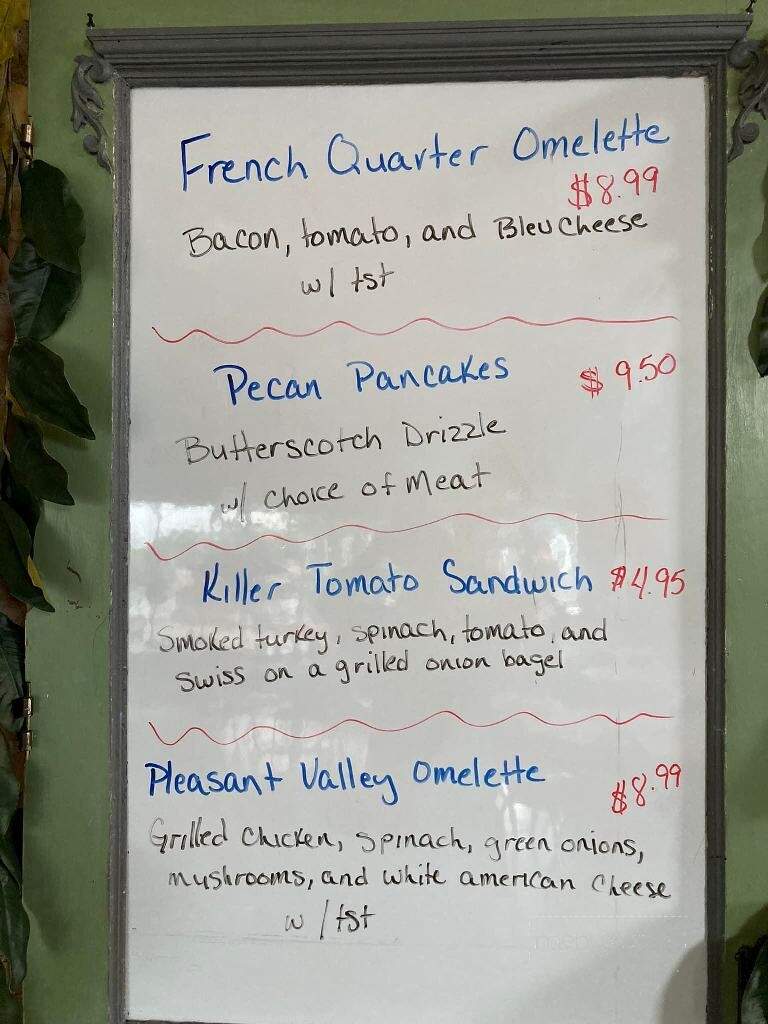 French Quarter Omelette
$8.99
Bacon, tomato, and Bleu Cheese
w/ tst
Pecan Pancakes $9.50
Butterscotch Drizzle
w/ choice of meat
Killer Tomato Sandwich $4.95
Smoked turkey, spinach, tomato, and
Swiss on a grilled onion bagel
Pleasant Valley Omelette $8.99
Grilled Chicken, spinach, green onions,
mushrooms, and white american cheese
w/tst